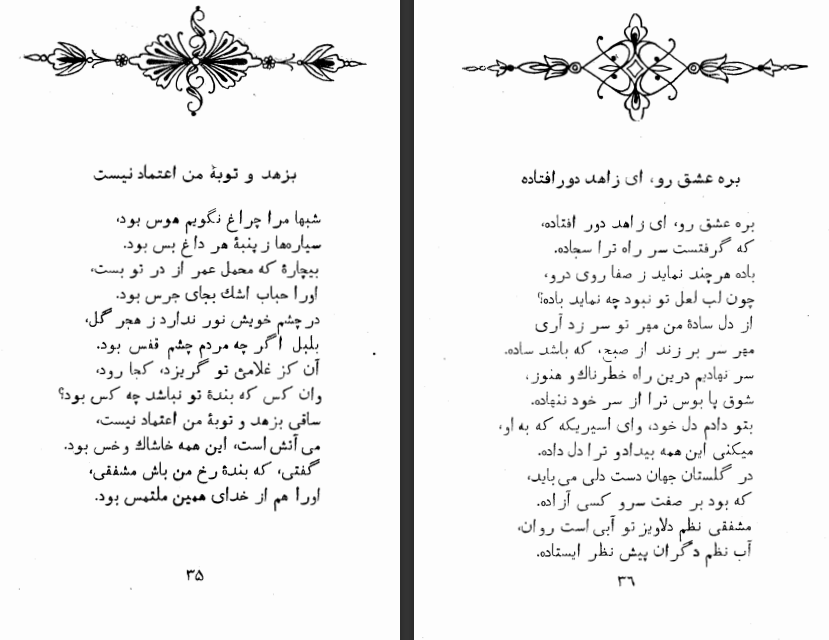 بزهد و توبهٔ من اعتماد نیست
شبها مرا چراغ نگویم هوس بود،
سیاره‌ها ز پنبهٔ هر داغ بس بود.
بیچارهٔ که محمل عمر از در تو بست،
اورا حباب اشك بجای جرس بود.
در چشم خویش نور ندارد ز هجر گل،
بلبل اگر چه مردم چشم قفس بود.
آن کز غلامئ تو گریزد، کجا رود،
وان کس که بندهٔ تو نباشد چه کس بود؟
ساقی بزهد و توبهٔ من اعتماد نیست،
می آتش است، این همه خاشاك و خس بود.
گفتی، که بندهٔ رخ من باش مشفقی،
اورا هم از خدای همین ملتمس بود.
۳۵
بره عشق رو، ای زاهد دورافتاده
بره عشق رو، ای زاهد دور افتاده،
که گرفتست سر راه ترا سجاده.
باده هرچند نماید ز صفا روی درو،
چون لب لعل تو نبود چه نماید باده؟
از دل سادهٔ من مهر تو سر زد آری
مهر سر بر زند از صبح، که باشد ساده.
سر نهادیم درین راه خطرناك و هنوز،
شوق پا بوس ترا از سر خود ننهاده.
بتو دادم دل خود، وای اسیریکه که به او،
میکنی این همه بیدادو ترا دل داده.
در گلستان جهان دست دلی می باید،
که بود بر صفت سرو کسی آزاده.
مشفقی نظم دلاویز تو آبی است روان،
آب نظم دگران پیش نظر ایستاده.
۳۶